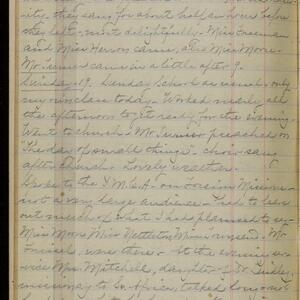 they sang for about half an hour before
they left - most delightfully. Miss Freeman
and Miss Herron came, and Miss Moore
Mr. came in a little after 9.
Sunday - 19. Sunday School as usual - only
my own class today. Worked nearly all
the afternoon to get ready for the evening.
Went to church. Mr. Junior preached on
"The day of small things" - choir sang
after church. Lovely weather.
Spoke to the Y.M.C.A. on Foreign Missions
not a very large audience - Had to leave
out much of what I had planned to say
Miss Moore Miss Nettleton Miss Mr.
were there - At the evening ser-
vice Mrs. Mitchell, daughter of Dr.
on way to So. Africa, talked